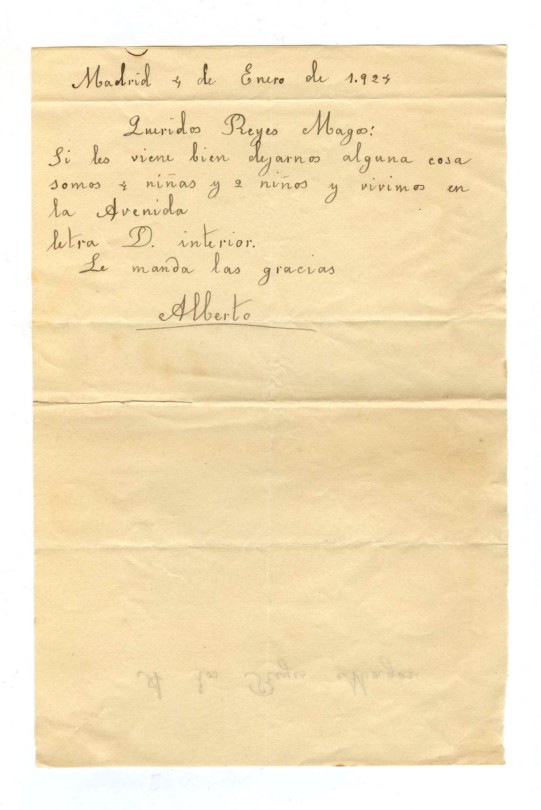 Madrid 4 de Enero de 1.924
Queridos Reyes Magos:
Si les viene bien dejarnos alguna cosa
somos 4 niñas y 2 niños y vivimos en
la Avenida
letra D. interior.
Le manda las gracias
Alberto
A los Reyes Magos